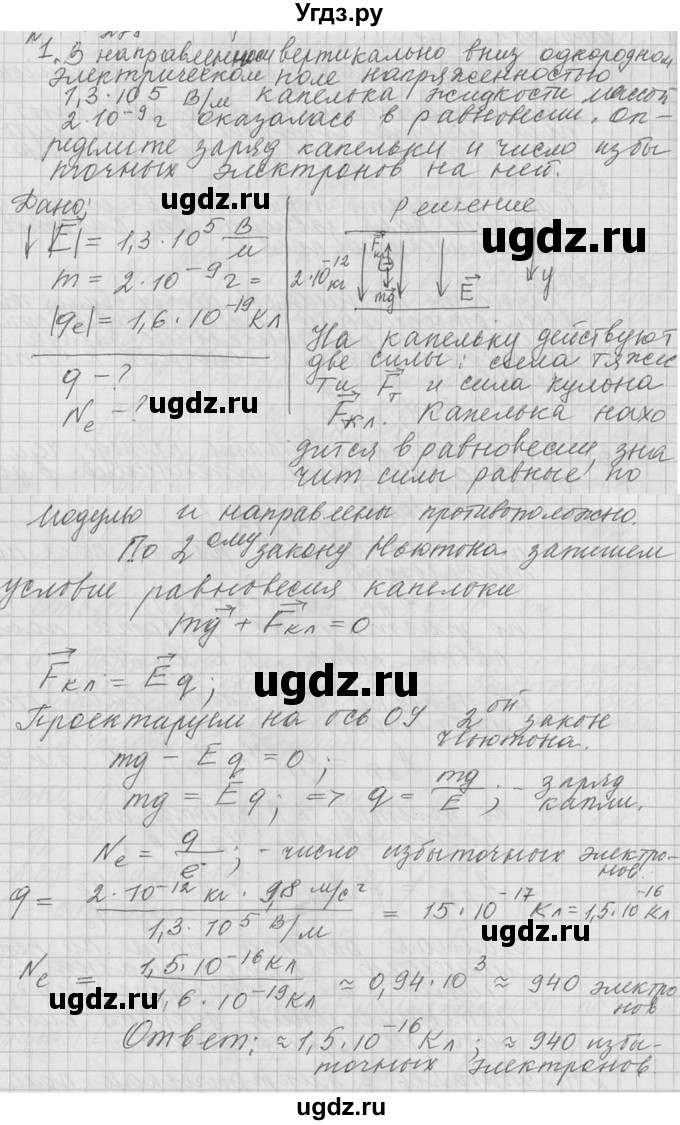 Угдз.ру
1. В направленном вертикально вниз однородном
электрическом поле напряженностью
1,3·10⁵ В/м капелька жидкости массой
2·10⁻⁹ г оказалась в равновесии. Оп-
ределите заряд капельки и число избы
точных электронов на ней.
Дано:
↓|E⃗| = 1,3·10⁵ В/м
m = 2·10⁻⁹ г = 2·10⁻¹² кг
|qe| = 1,6·10⁻¹⁹ Кл
q - ?
Ne - ?
ugdz.ru
Решение
F⃗кл
mg⃗
E⃗
y
На капельку действуют
две силы: сила тяжес
ти F⃗т и сила кулона
F⃗кл. Капелька нахо
дится в равновесии, зна
чит силы равные по
ugdz.ru
модулю и направлены противоположно.
По 2ому закону Ньютона запишем
условие равновесия капельки
mg⃗ + F⃗кл = 0
F⃗кл = E⃗q;
ugdz.ru
Проектируем на ось ОУ 2ой закон
Ньютона.
mg - Eq = 0;
mg = Eq; => q = mg/E; - заряд
капли.
ugdz.ru
Ne = q/e; - число избыточных электро-
нов.
q = 2·10⁻¹² кг · 9,8 м/с² / 1,3·10⁵ В/м = 15·10⁻¹⁷ Кл = 1,5·10⁻¹⁶ Кл
ugdz.ru
Ne = 1,5·10⁻¹⁶ Кл / 1,6·10⁻¹⁹ Кл ≈ 0,94·10³ ≈ 940 электро
нов
ugdz.ru
Ответ: ≈ 1,5·10⁻¹⁶ Кл; ≈ 940 избы-
точных электронов.
ugdz.ru